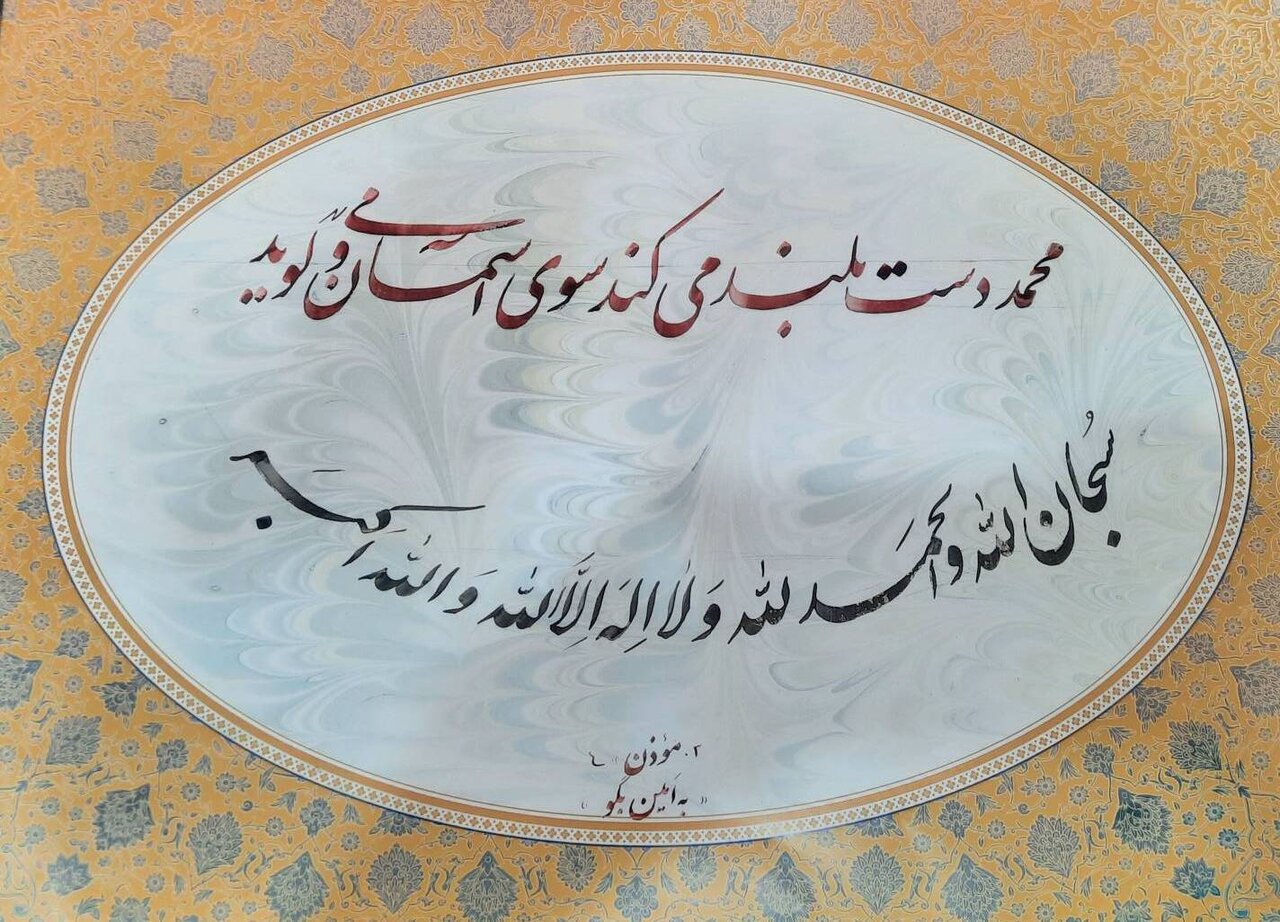 محمد دست بلند می کند سوی آسمان و می گوید
سُبحان الله والحمد لله وَلا اِلهَ اِلَّا الله وَالله اَکبَر
مؤذن ۲۰۲۴
«به امین نکو»